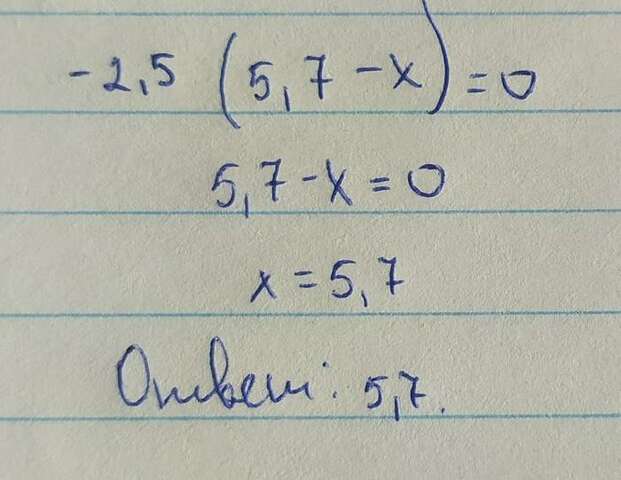 -2,5 (5,7 - x) = 0
5,7 - x = 0
x = 5,7
Ответ: 5,7.